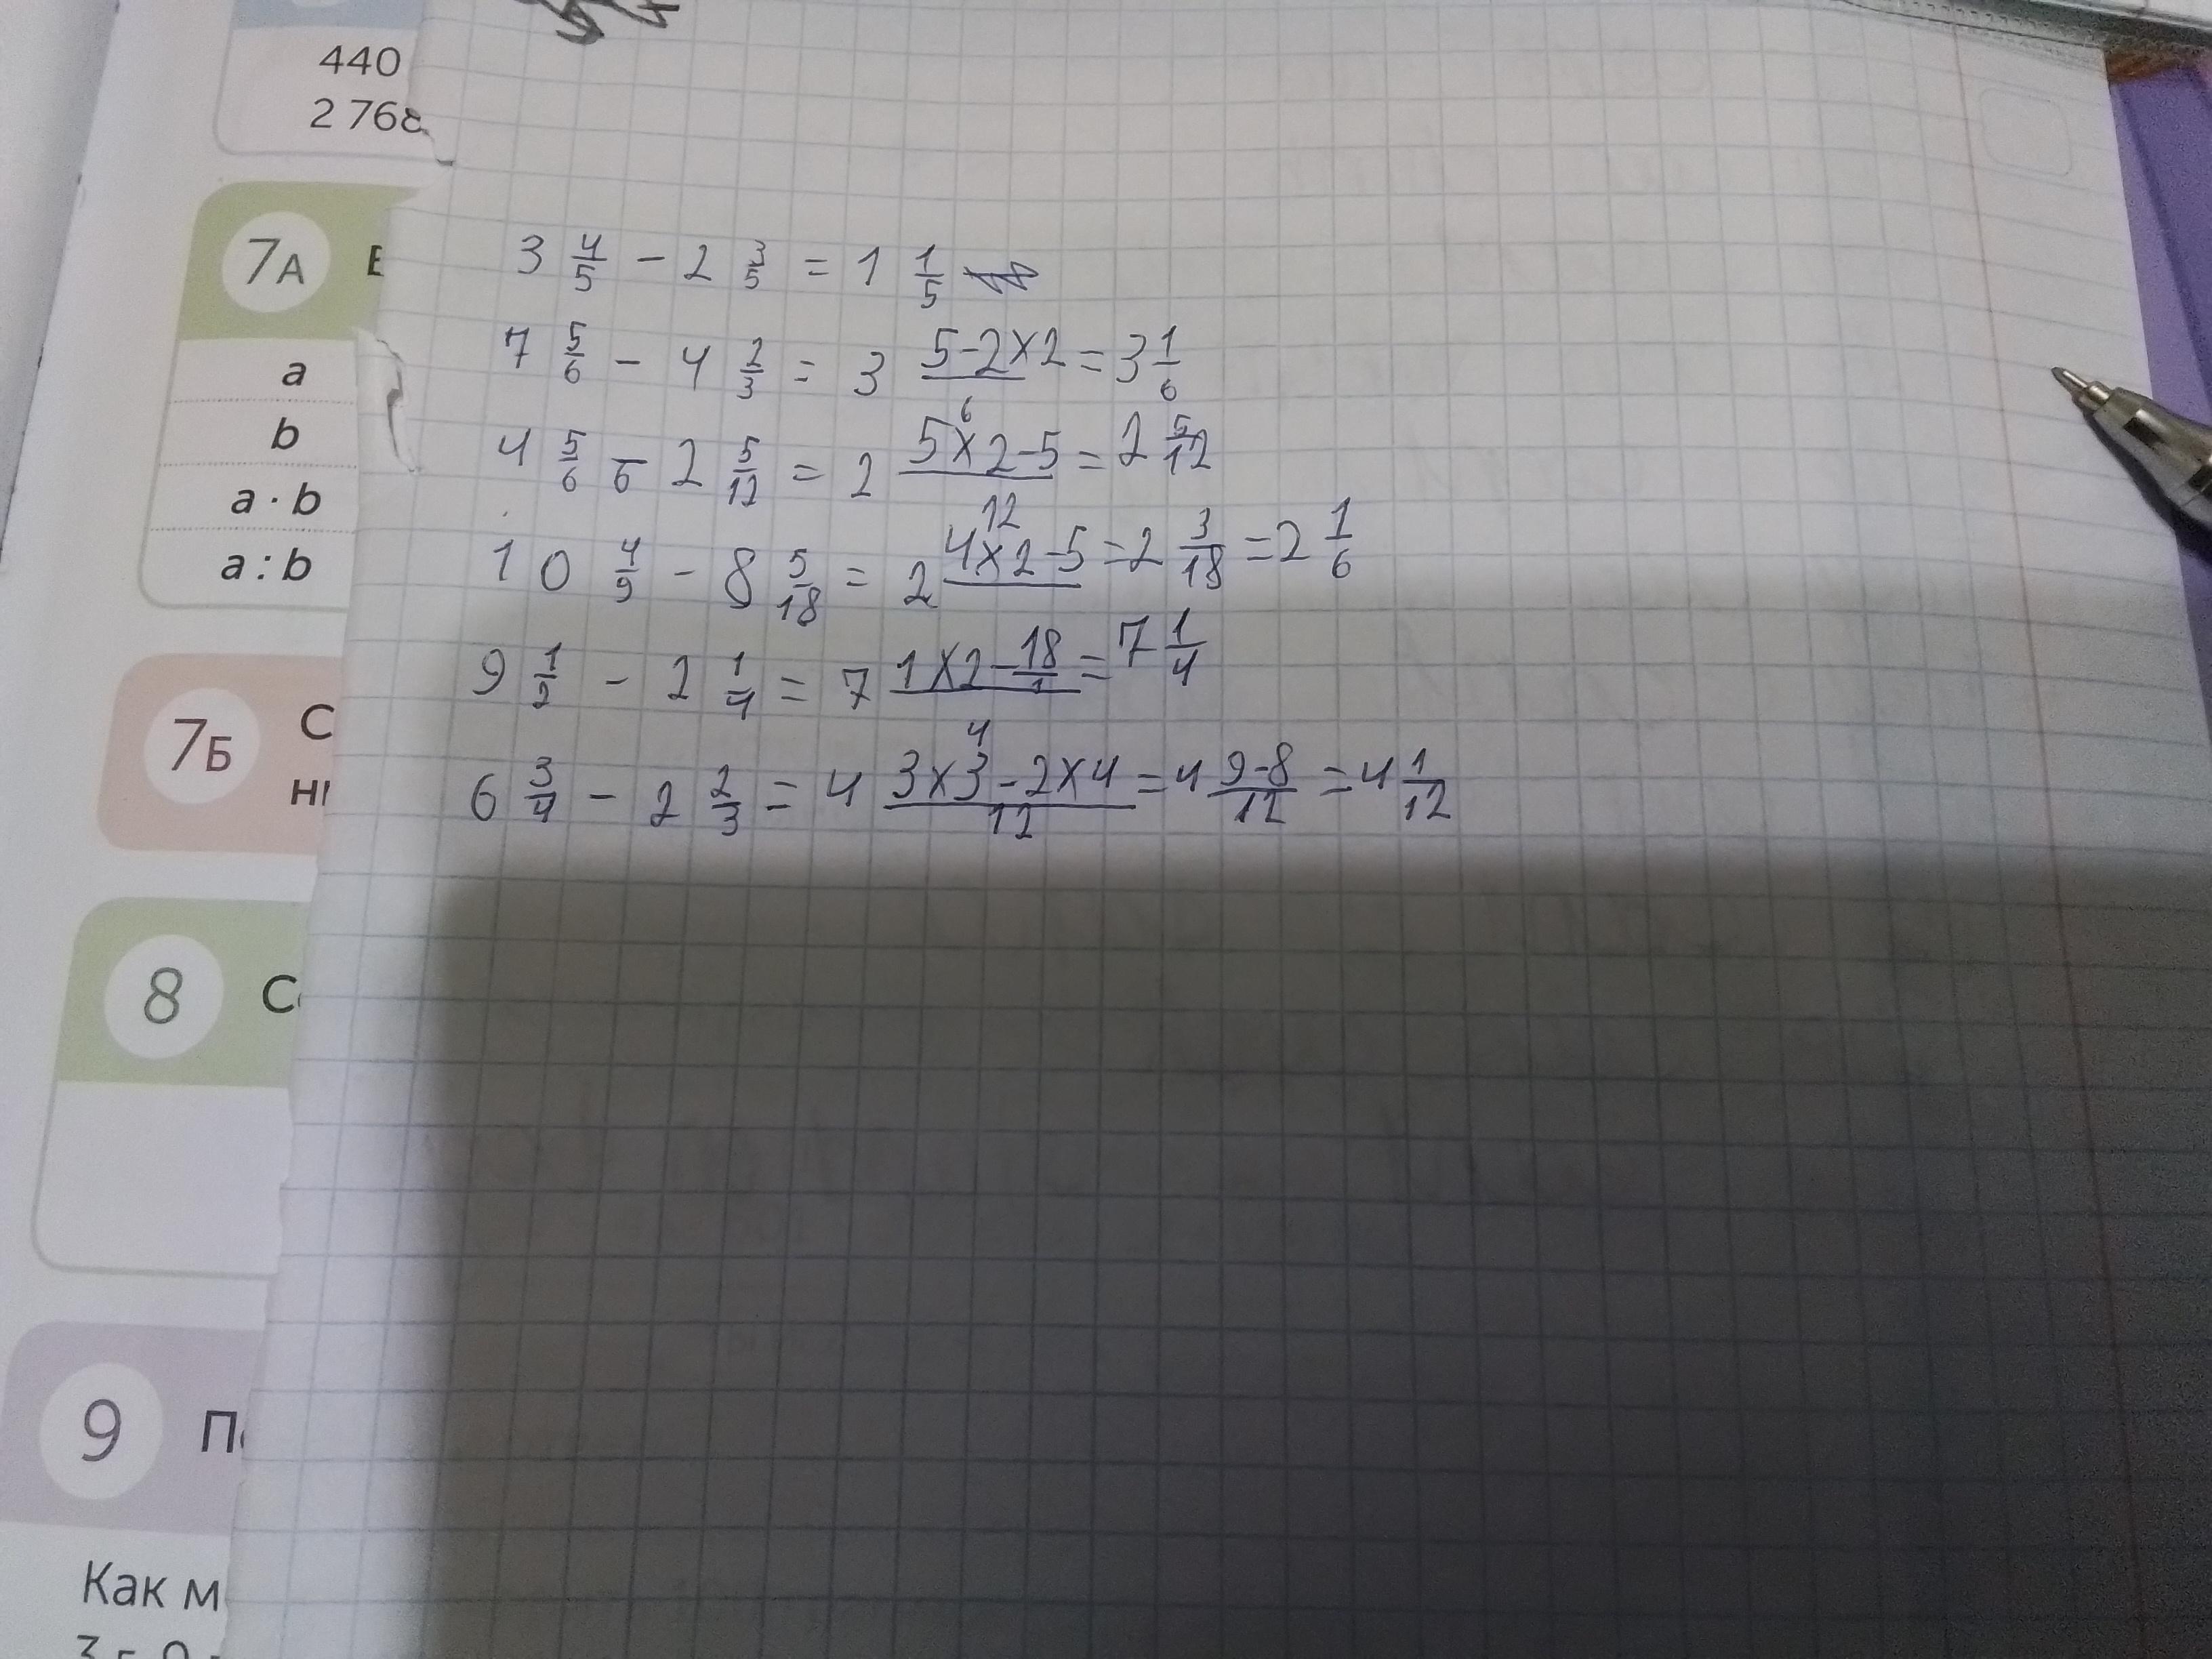 440
2 768
7А
В
a
b
a · b
a : b
7Б
С
ни
8
С
9
П
Как м
3 4/5 - 2 3/5 = 1 1/5
7 5/6 - 4 2/3 = 3 (5-2×2)/6 = 3 1/6
4 5/6 - 2 5/12 = 2 (5×2-5)/12 = 2 5/12
10 4/9 - 8 5/18 = 2 (4×2-5)/18 = 2 3/18 = 2 1/6
9 1/2 - 2 1/4 = 7 (1×2-1)/4 = 7 1/4
6 3/4 - 2 2/3 = 4 (3×3-2×4)/12 = 4 (9-8)/12 = 4 1/12